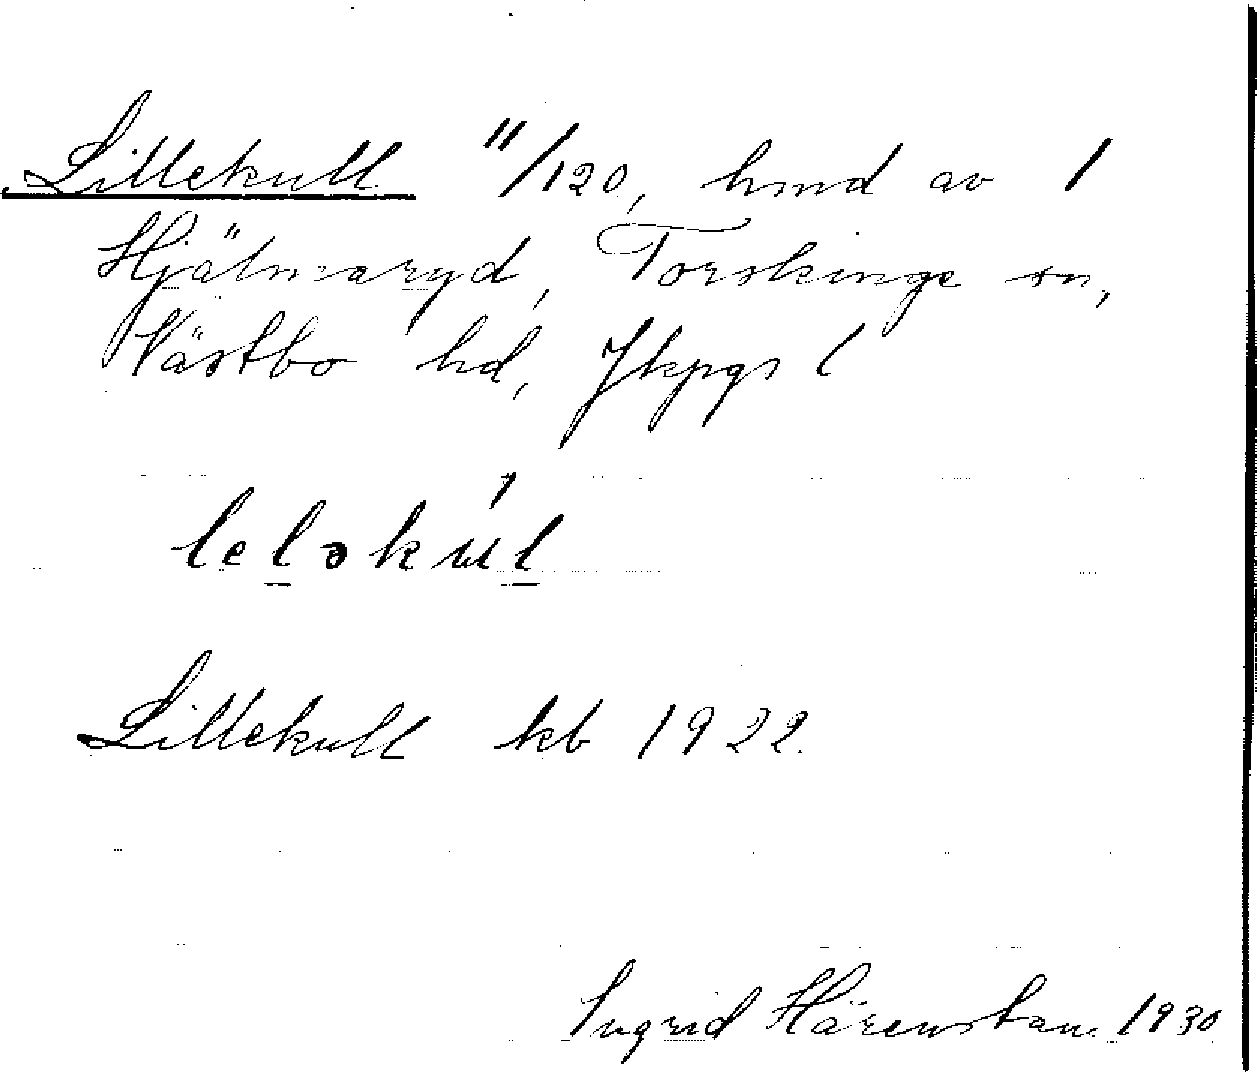 Lillekull 11/120, hmd av 1
Hjälmaryd, Torskinge sn,
Västbo hd, Jkpgs l
leləkul
Lillekull kb 1922.
Ingrid Härenstam 1930